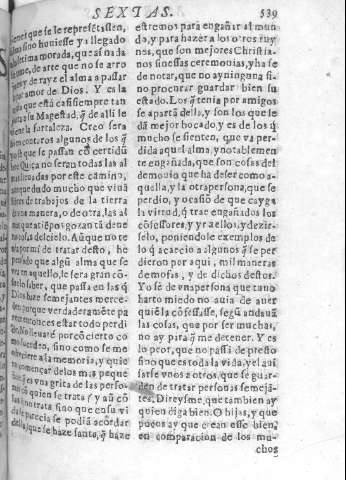 SEXTAS.
539
bienes que se le representassen,
alma sino huuiesse ya llegado
morada, que assi nada
temo, de arte que no se arro
y de raiz el alma a passar
por amor de Dios. Y es la
que està casi siempre tan
a su Magestad, q̃ de alli le
viene la fortaleza. Creo sera
bien contaros algunos de los q̃
yo sè que se passan cõ certidũ
bre. Quiça no seran todas las al
mas lleuadas por este camino,
aunque dudo mucho que viuã
libres de trabajos de la tierra
de vna manera, o de otra, las al
mas que a tiẽpos gozan tã de ve
ras cosas del cielo. Aũque no te
nia por mi de tratar desto, he
pensado que algũ alma que se
vea en aquello, le sera gran cõ
suelo saber, que passa en las q̃
Dios haze semejantes merce
des, porque verdaderamẽte pa
rece entonces està todo perdi
do. No lleuarè por cõcierto co
mo suceden, sino como se me
ofreciere a la memoria, y quie
ro començar de los mas peque
ños, q̃ es vna grita de las perso
nas cõ quien se trata (y aũ cõ
las q̃ no trata sino que en su vi
da le parecia se podiã acordar
della) que se haze santa, q̃ haze
estremos para engañar al mun
do, y para hazer a los otros ruy
nes, que son mejores Christia-
nos sin essas ceremonias, y ha se
de notar, que no ay ninguna si-
no procurar guardar bien su
estado. Los q̃ tenia por amigos
se apartã della, y son los que le
dã mejor bocado, y es de los q̃
mucho se sienten, que va per-
dida aquel alma, y notablemen
te engañada, que son cosas del
demonio que ha de ser como a-
quella, y la otra persona, que se
perdio, y ocasiõ de que cayga
la virtud, q̃ trae engañados los
cõfessores, y yr a ellos, y dezir-
selo, poniendole exemplos de
lo q̃ acaecio a algunos q̃ se per-
dieron por aqui, mil maneras
de mofas, y de dichos destos.
Yo sè de vna persona que tuuo
harto miedo no auia de auer
quiẽ la cõfessasse, segũ andauã
las cosas, que por ser muchas,
no ay para q̃ me detener. Y es
lo peor, que no passã de presto
sino que es toda la vida, y el aui
sarse vnos a otros, que se guar-
den de tratar personas semejã-
tes. Direysme, que tambien ay
quien diga bien. O hijas, y que
pocos ay que crean esse bien,
en comparacion de los mu-
chos